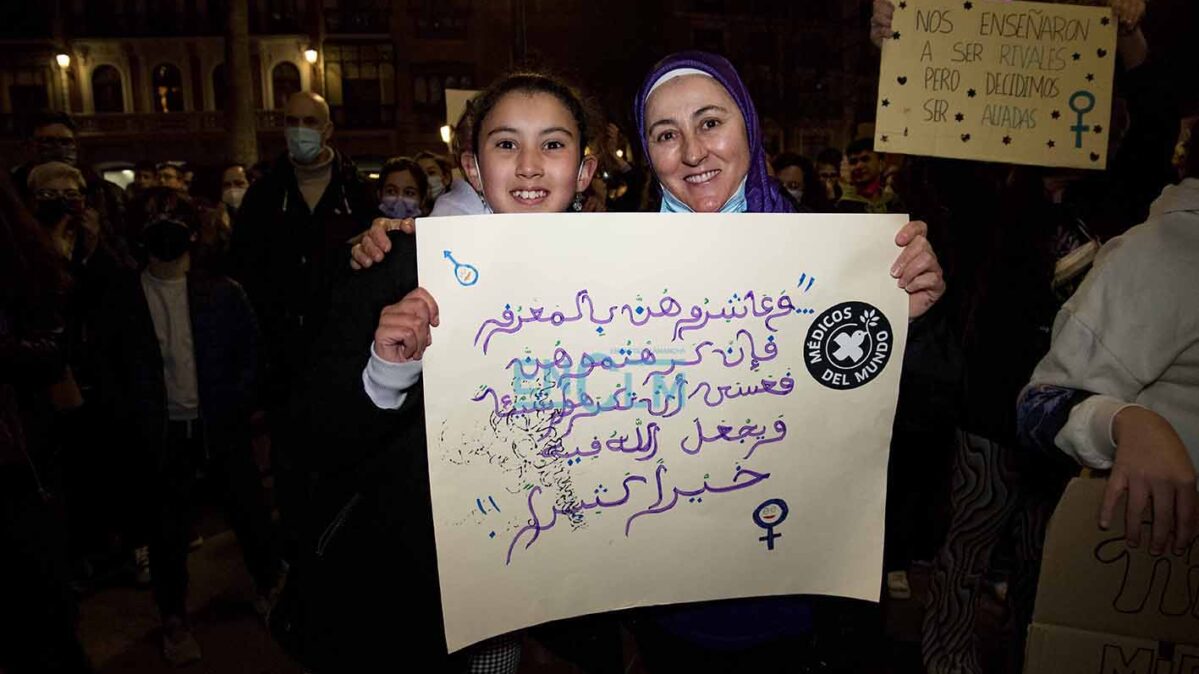 NOS ENSEÑARON
A SER RIVALES
PERO DECIDIMOS
SER ALIADAS
"...وَعَاشِرُوهُنَّ بِالمَعْرُفِ
فَإِنْ كَرِهْتُمُوهُنَّ
فَعَسَى أَن تَكْرَهُوا شَيْئًا
وَيَجْعَلَ اللَّهُ فِيهِ
خَيْراً كَثِيراً. "
MÉDICOS DEL MUNDO
ENCLM